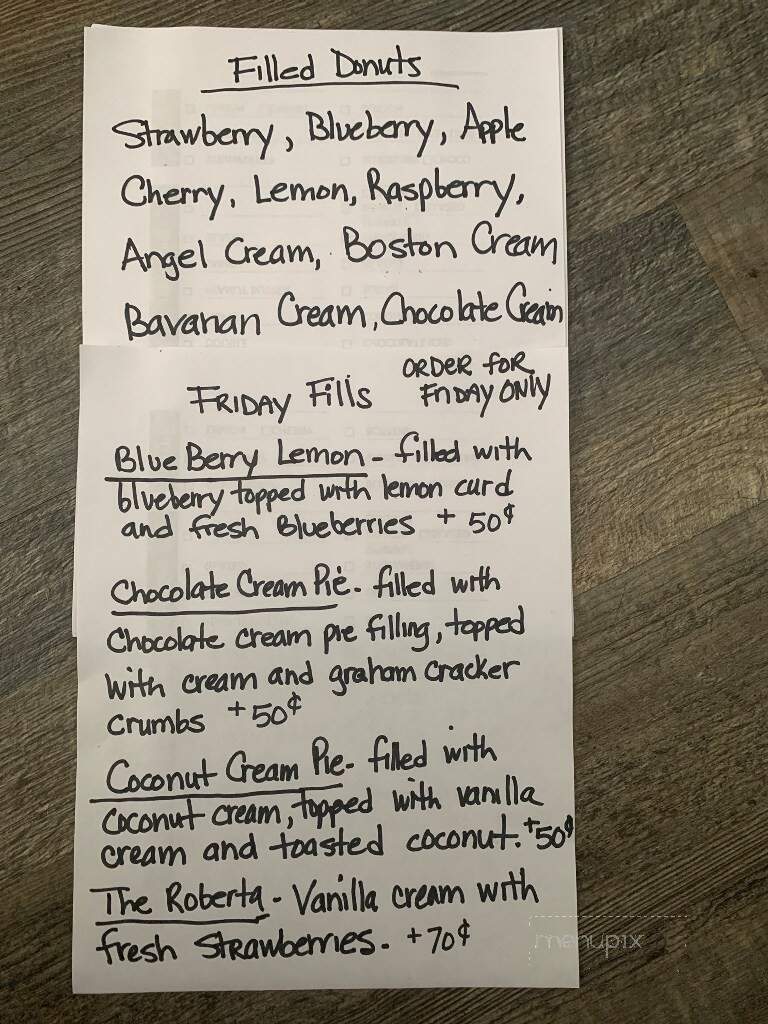 Filled Donuts
Strawberry, Blueberry, Apple
Cherry, Lemon, Raspberry,
Angel Cream, Boston Cream
Bavarian Cream, Chocolate Cream
FRIDAY Fills
ORDER foR
FRIDAY ONLY
Blue Berry Lemon - filled with
blueberry topped with lemon curd
and fresh Blueberries + 50¢
Chocolate Cream Pie - filled with
Chocolate cream pie filling, topped
with cream and graham cracker
crumbs +50¢
Coconut Cream Pie - filled with
coconut cream, topped with vanilla
cream and toasted coconut. +50¢
The Roberta - Vanilla cream with
fresh Strawberries. +70¢
menupix